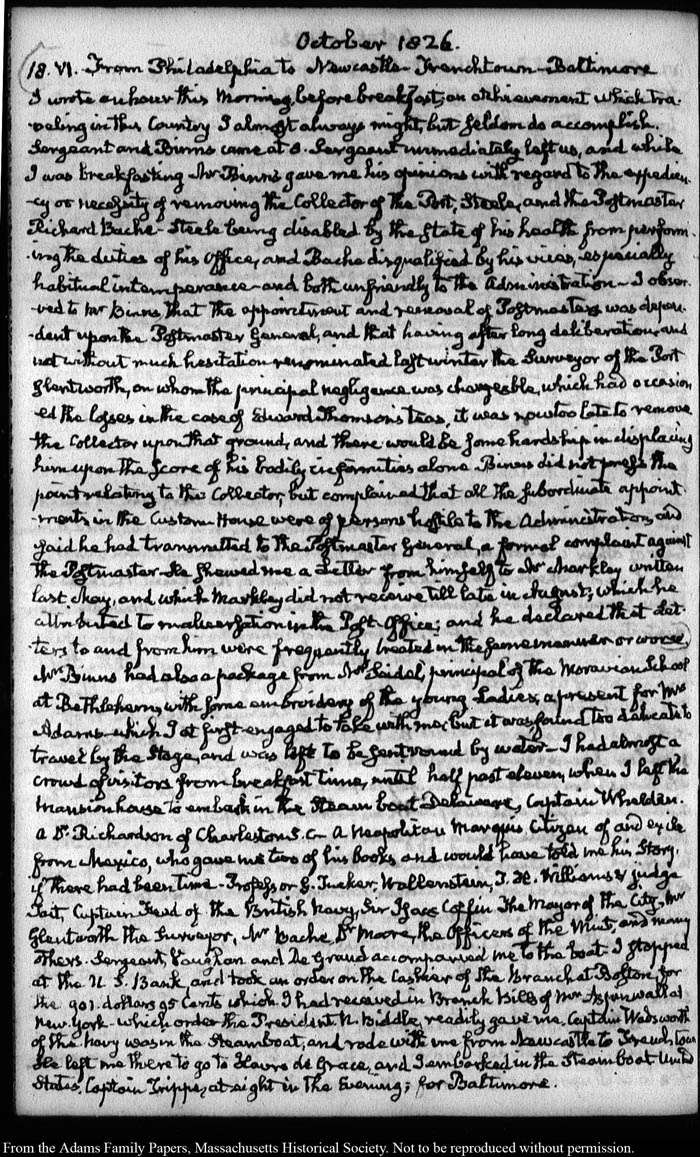 October 1826.
18. VI. From Philadelphia to Newcastle - Frenchtown - Baltimore
I wrote an hour this Morning before breakfast; an atchievement which tra-
veling in this Country I almost always might, but seldom do accomplish.
Sergeant and Binns came at 8. Sergeant immediately left us, and while
I was breakfasting Mr Binns gave me his opinions with regard to the expedien-
cy or necessity of removing the Collector of the Port, Steele, and the Postmaster
Richard Bache - Steele being disabled by the state of his health from perform-
ing the duties of his Office, and Bache disqualified by his vices, especially
habitual intemperance - and both unfriendly to the Administration - I obser-
ved to Mr Binns, that the appointment and removal of Postmasters was depen-
dent upon the Postmaster General, and that having after long deliberation, and
not without much hesitation renominated last winter the Surveyor of the Port
Glentworth, on whom the principal negligence was chargeable, which had occasion-
ed the losses in the case of Edward Thomson's teas, it was now too late to remove
the Collector upon that ground, and there would be some hardship in displacing
him upon the score of his bodily infirmities alone. Binns did not press the
point relating to the Collector, but complained that all the subordinate appoint-
ments in the Custom-House were of persons hostile to the Administration, and
said he had transmitted to the Postmaster General, a formal complaint against
the Postmaster. He shewed me a Letter from himself to Mr Markley written
last May, and which Markley did not receive till late in August; which he
attributed to malversation in the Post-Office; and he declared that Let-
ters to and from him were frequently treated in the same manner or worse.
Mr Binns had also a package from Mr Seidal, principal of the Moravian School
at Bethlehem, with some embroidery of the young Ladies, a present for Mrs
Adams - which I at first engaged to take with me, but it was found too delicate to
travel by the Stage, and was left to be sent round by water - I had almost a
crowd of visitors from breakfast time, until half past eleven, when I left the
Mansion house to embark in the Steam boat Delaware, Captain Whelden.
a Dr. Richardson of Charleston S. C - A Neapolitan Marquis Citizen of and exile
from Mexico, who gave me two of his books and would have told me his Story,
if there had been time - Professor G. Tucker, Wallenstein, J. H. Williams, Judge
Tait, Captain Read of the British Navy, Sir Isaac Coffin The Mayor of the City, Mr
Glentworth the Surveyor, Mr Bache, Dr Moore, the Officers of the Mint, and many
others. Sergeant, Vaughan and De Grand accompanied me to the boat. I stopped
at the U. S. Bank, and took an order on the Cashier of the Branch at Boston, for
the 901. dollars 95 Cents which I had received in Branch Bills of Mr Aspinwall at
New-York - which order the President N. Biddle, readily gave me. Captain Wadsworth
of the Navy was in the Steamboat, and rode with me from Newcastle to French, town
He left me there to go to Havre de Grace, and I embarked in the Steam boat United
States, Captain Trippe, at eight in the Evening; for Baltimore.
From the Adams Family Papers, Massachusetts Historical Society. Not to be reproduced without permission.